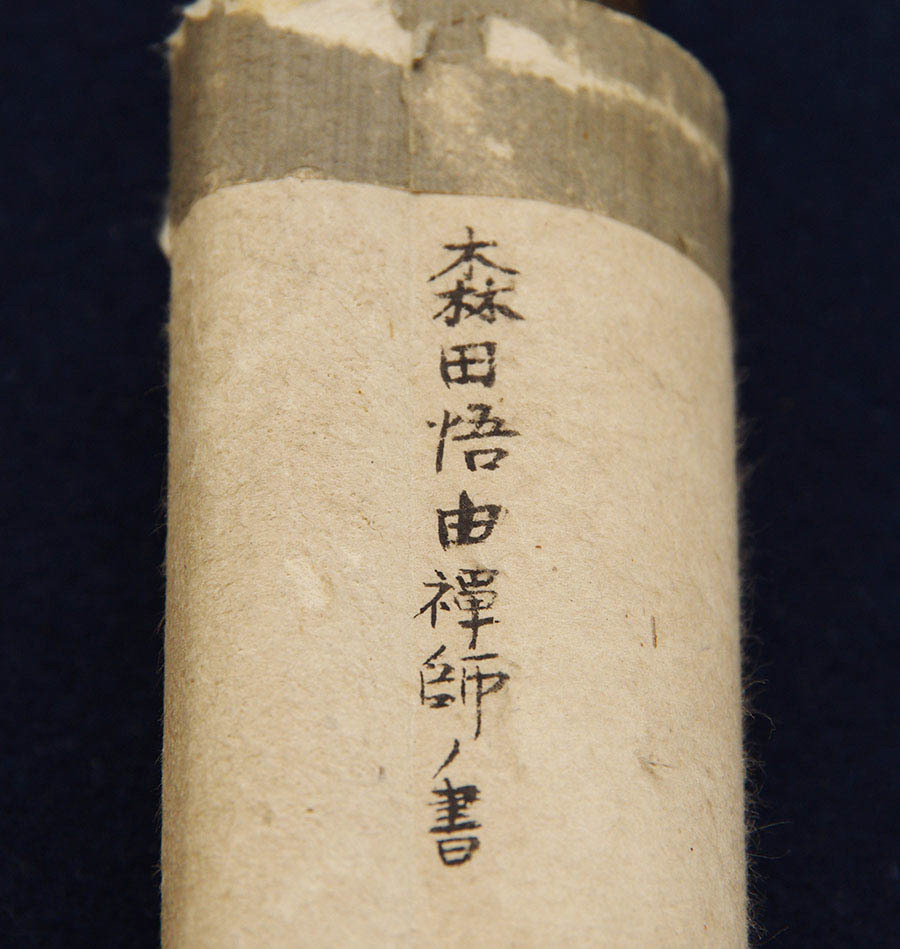 森田悟由禪師ノ書